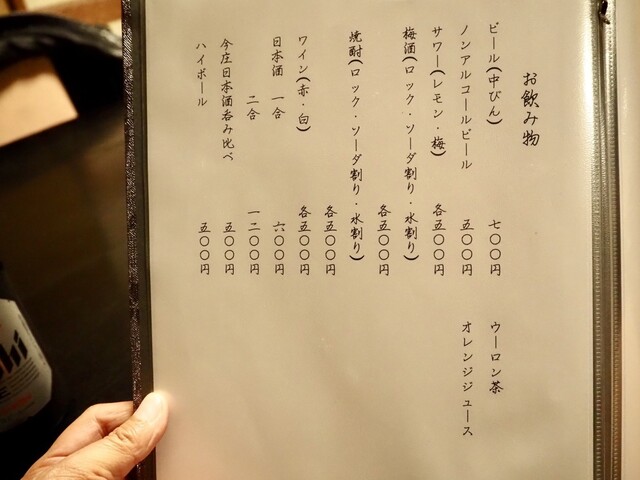 お飲み物
ビール(中びん) 七〇〇円
ノンアルコールビール 五〇〇円
サワー(レモン・梅) 各五〇〇円
梅酒(ロック・ソーダ割り・水割り)
各五〇〇円
焼酎(ロック・ソーダ割り・水割り)
各五〇〇円
ワイン(赤・白) 各五〇〇円
日本酒 一合 六〇〇円
二合 一二〇〇円
今庄日本酒呑み比べ 五〇〇円
ハイボール 五〇〇円
ウーロン茶
オレンジジュース